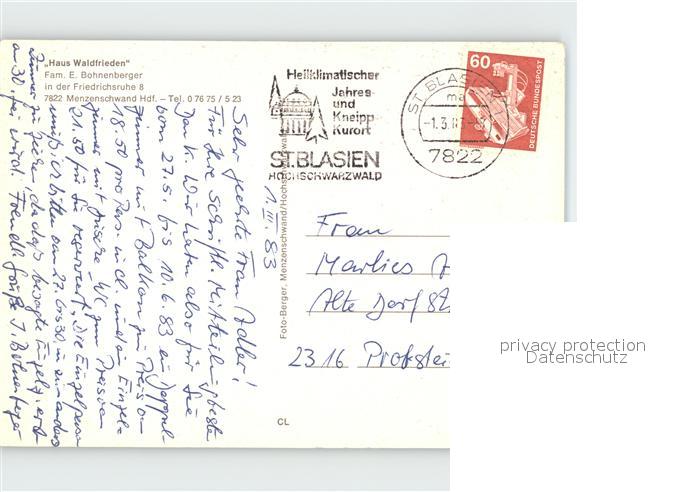 „Haus Waldfrieden"
Fam. E. Bohnenberger
in der Friedrichsruhe 8
7822 Menzenschwand Hdf. – Tel. 0 76 75 / 5 23
Heilklimatischer
Jahres-
und
Kneipp
Kurort
ST.BLASIEN
HOCHSCHWARZWALD
ST. BLASIEN
ma
-1.3.83-
7822
60
DEUTSCHE BUNDESPOST
1. III. 83
Sehr geehrte Frau Adler!
Für Ihre Schriftl. Mitteilung beste
Dank. Wir haben also für Sie
vom 27.5. bis 10.6.83 ein Doppel-
zimmer mit Balkon zum Preis v.
18.50 pro Pers. incl. und ein Einzel-
zimmer mit Dusche, WC zum Preis von
21.50 für Sie reserviert. Die Einzelperson
muß ich bitten vom 27. bis 30. in ein anderes
Zimmer zu gehen, da das besagte Einzelz. erst
am 30. frei wird. Freundl. Grüße I. Bohnenberger
Foto-Berger, Menzenschwand/Hochschwarzwald
Frau
Marlies A
Alte Dorfst
2316 Probstei
CL
privacy protection
Datenschutz